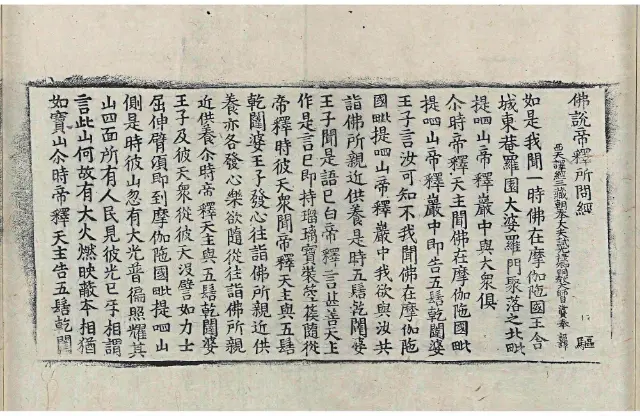 佛說帝釋所問經
西天譯經三藏朝奉大夫試
驅
如是我聞一時佛在摩伽陁國王舍
城東菴羅園大婆羅門聚落之北毗
提呬山帝釋巖中與大衆俱
尒時帝釋天主聞佛在摩伽陁國毗
提呬山帝釋巖中即告五髻乾闥婆
王子言汝可知不我聞佛在摩伽陁
國毗提呬山帝釋巖中我欲與汝共
詣佛所親近供養是時五髻乾闥婆
王子聞是語已白帝釋言甚善天主
作是言已即持瑠璃寶裝箜篌隨從
帝釋時彼天衆聞帝釋天主與五髻
乾闥婆王子發心往詣佛所親近供
養亦各發心樂欲隨從往詣佛所親
近供養尒時帝釋天主與五髻乾闥婆
王子及彼天衆從彼天沒譬如力士
屈伸臂頃即到摩伽陁國毗提呬山
側是時彼山忽有大光普徧照耀其
山四面所有人民見彼光已互相謂
言此山何故有大火燃映蔽本相猶
如寶山尒時帝釋天主告五髻乾闥